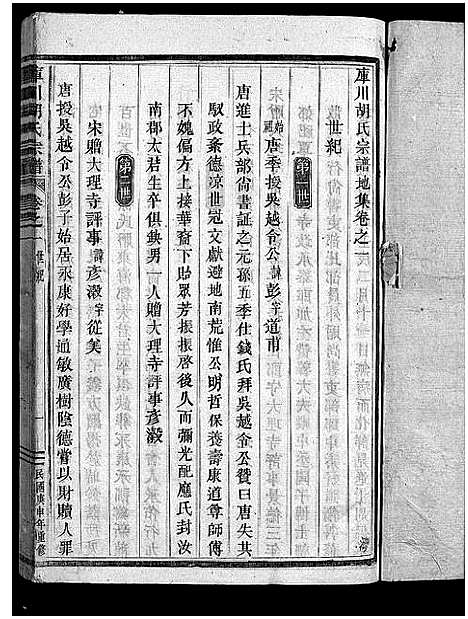 庫川胡氏宗譜地集卷之一
世紀
第一世
始祖唐季授吳越令公諱彭字道甫
唐進士兵部尚書証之元孫五季仕錢氏拜吳越令公贊曰唐失其
馭政紊德凉世冕文獻避地南荒惟公明哲保養壽康道尊師傅
不媿偏方上接華裔下貽眾芳振振啓後久而彌光配應氏封汝
南郡太君生卒俱缺男一贈大理寺評事彥澂
第二世
宋贈大理寺評事諱彥澂字從美
唐授吳越令公彭子始居永康好學通敏廣樹陰德嘗以財贖人罪
庫川胡氏宗譜
卷之一
世紀
一
民國庚申年重修